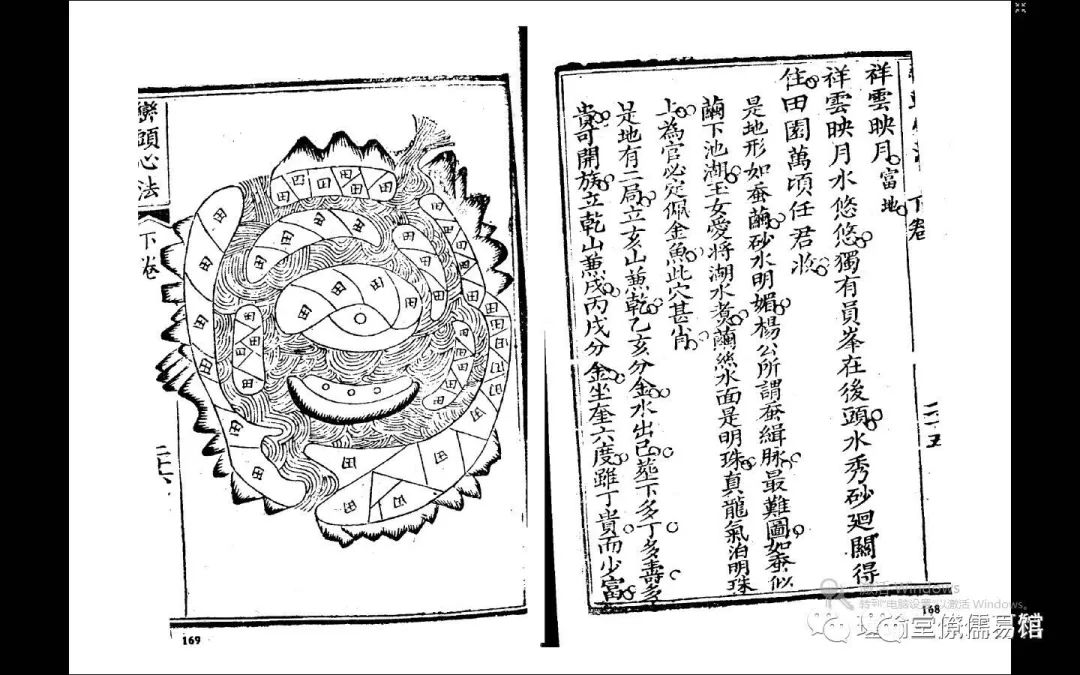 下卷
二十五
祥雲映月 富地
祥雲映月水悠悠獨有員峯在後頭水秀砂廻關得
住田園萬頃任君收
是地形如蚕繭砂水明媚楊公所謂蚕緝脉最難圖如蚕似
繭下池湖玉女愛將湖水煑繭絲水面是明珠真龍氣泊明珠
上為官必定佩金魚此穴甚肖
是地有二局立亥山兼乾乙亥分金水出己葬下多丁多壽多
貴可開族立乾山兼戌丙戌分金坐奎六度雖丁貴而少富
168
巒頭心法
下卷
二十六
169
激活 Windows
转到“电脑设置”以激活 Windows。
堂僚儒易馆